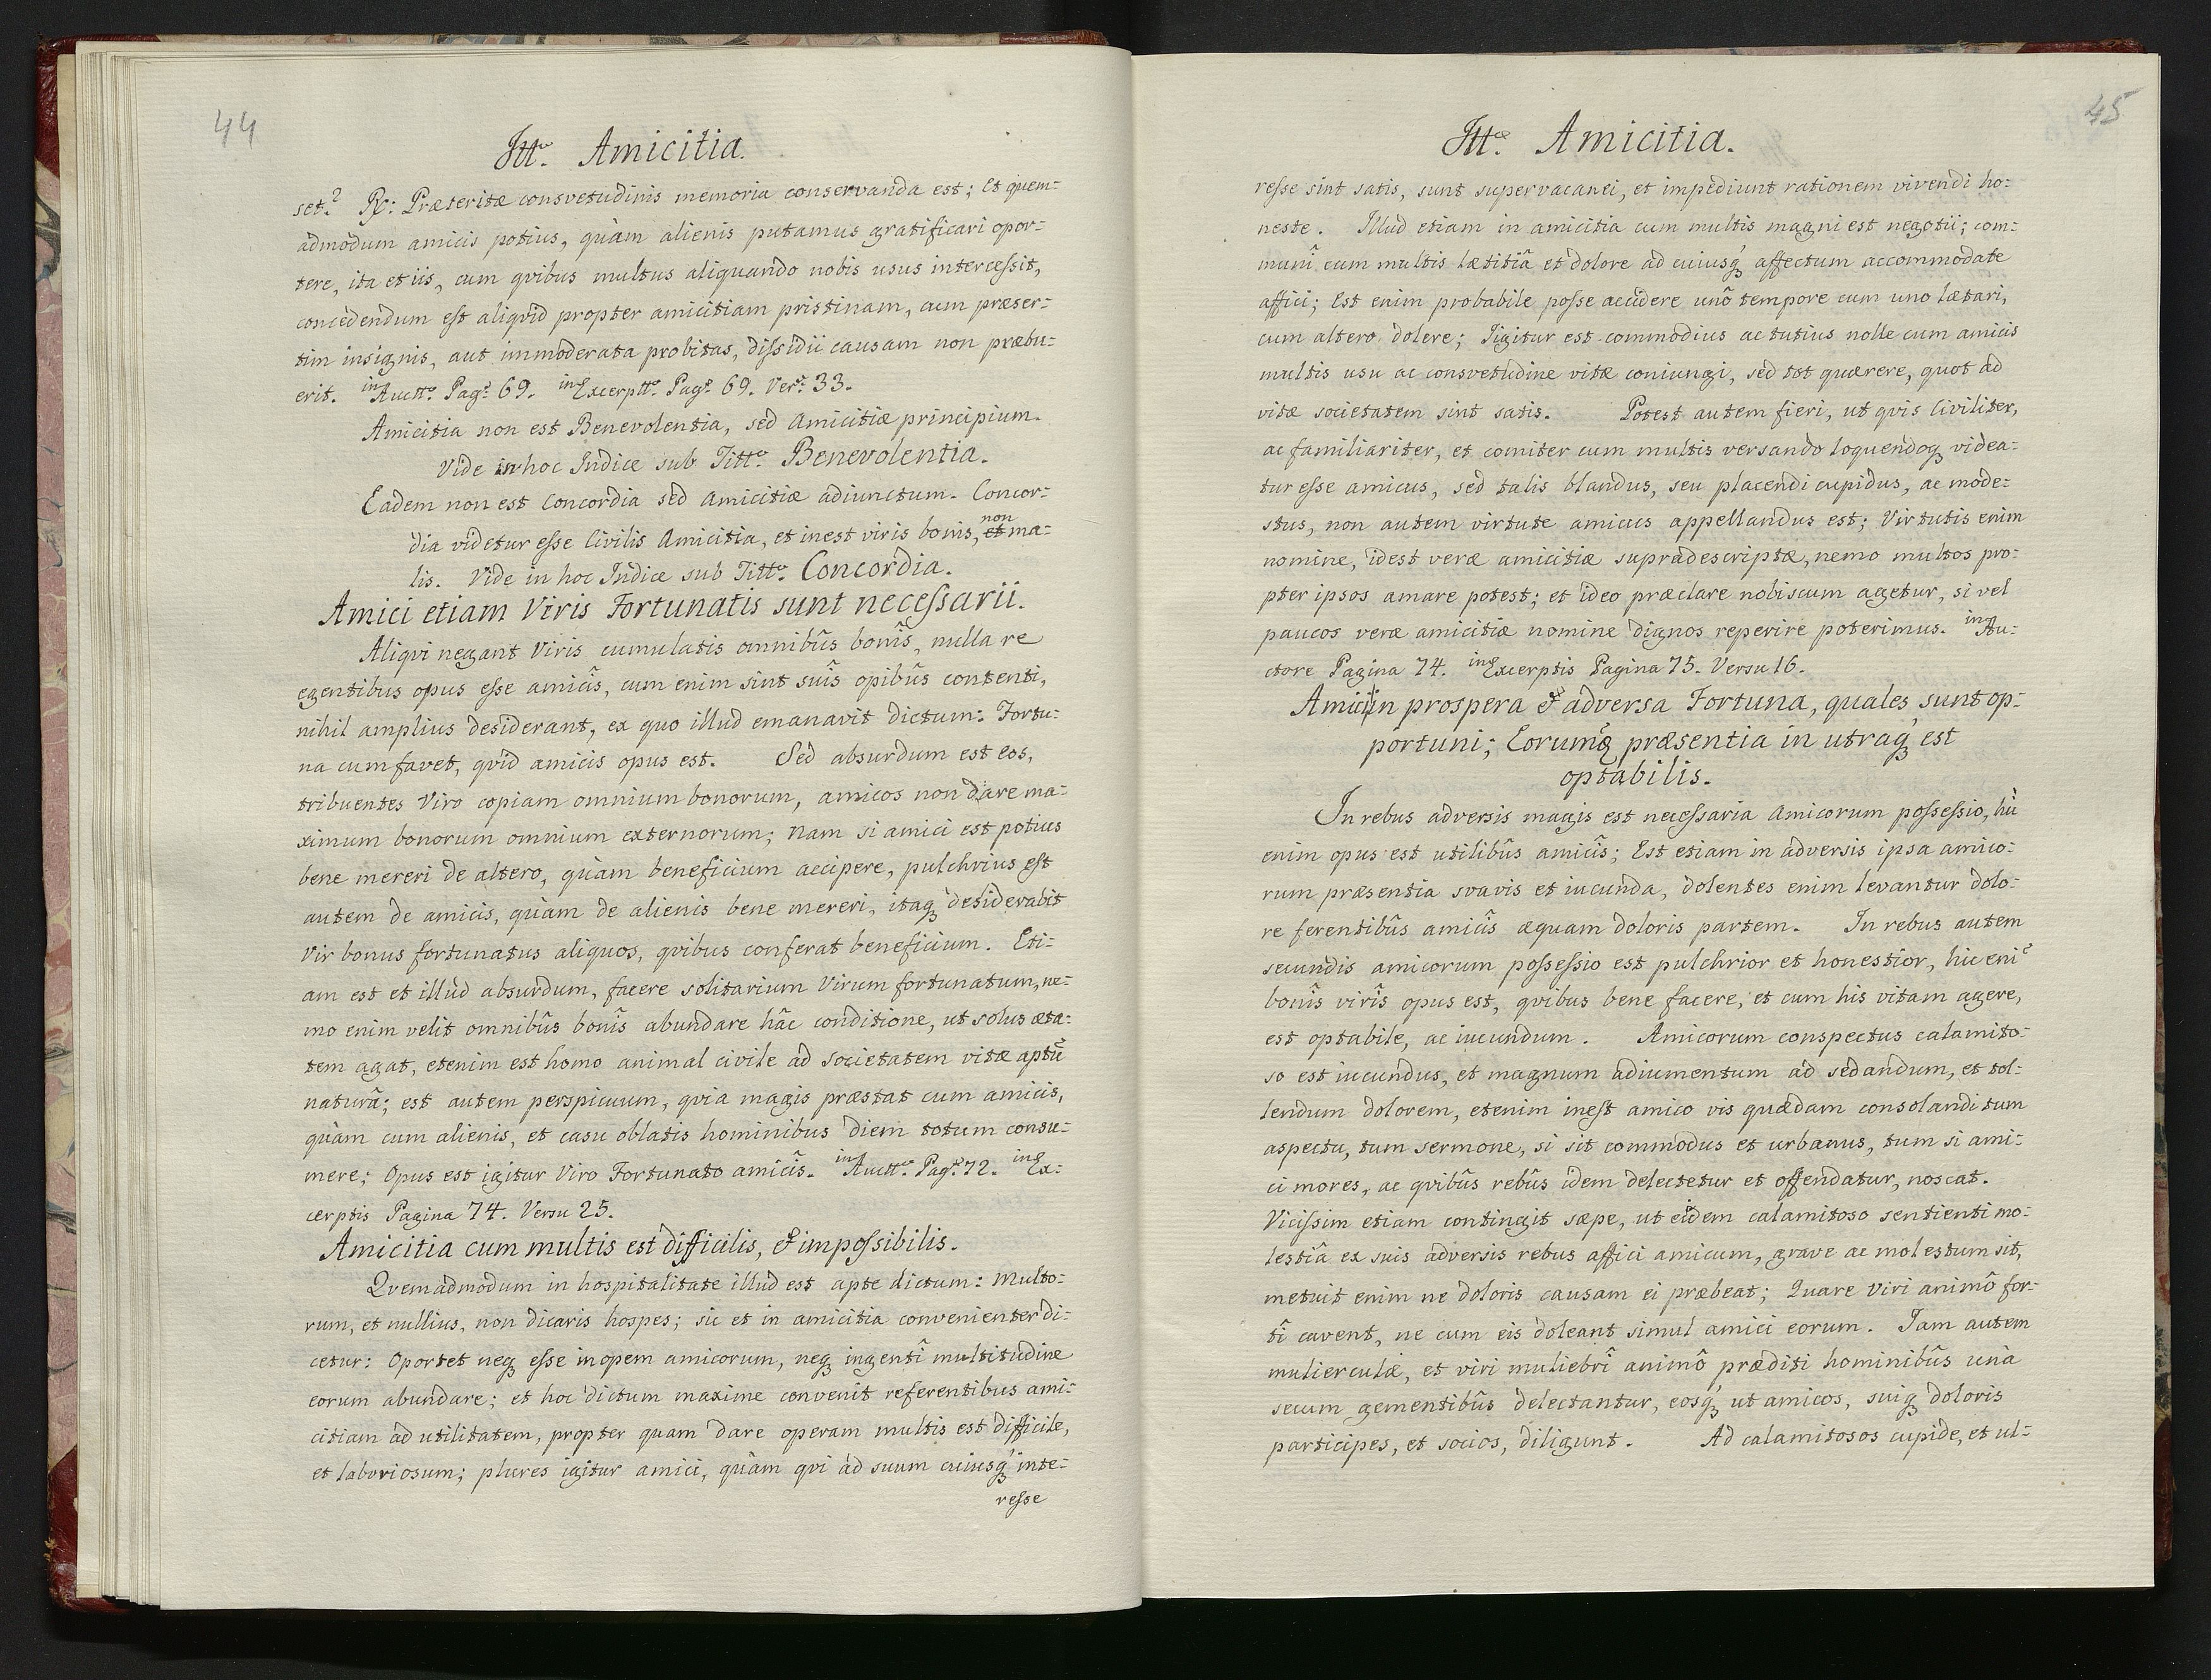 44
Ittᵒ. Amicitia.
set.? ℞: Præteritæ consvetudinis memoria conservanda est; et quem=
admodum amicis potius, quàm alienis putamus gratificari opor=
tere, ita et iis, cum qvibus multus aliquando nobis usus interceſsit,
concedendum eſt aliqvid propter amicitiam pristinam, cum præser=
tim insignis, aut immoderata probitas, diſsidii causam non præbu=
erit. in Auctᵒ. Pagᵃ. 69. in Excerptᵒ. Pagᵃ. 69. Verᵘ. 33.
Amicitia non est Benevolentia, sed Amicitiæ principium.
Vide in hoc Indice sub Tittᵒ. Benevolentia.
Eadem non est Concordia sed Amicitiæ adiunctum. Concor=
dia videtur eſse Civilis Amicitia, et inest viris bonis, et non ma=
lis. Vide in hoc Indice sub Tittᵒ. Concordia.
Amici etiam Viris Fortunatis sunt neceſsarii.
Aliqvi negant Viris cumulatis omnibûs bonîs, nulla re
egentibus opus eſse amicîs, cum enim sint suîs opibûs contenti,
nihil amplius desiderant, ex quo illud emanavit dictum: Fortu=
na cum favet, qvid amicis opus est. Sed absurdum est eos,
tribuentes Viro copiam omnium bonorum, amicos non dare ma=
ximum bonorum omnium externorum; Nam si amici est potius
bene mereri de altero, quàm beneficium accipere, pulchrius eſt
autem de amicis, quàm de alienis bene mereri, itaq₃ desiderabit
Vir bonus fortunatus aliquos, qvibus conferat beneficium. Eti=
am est et illud absurdum, facere solitarium Virum fortunatum, ne=
mo enim velit omnibûs bonîs abundare hâc conditione, ut solus æta=
tem agat, etenim est homo animal civile ad societatem vitæ aptũ
naturâ; est autem perspicuum, qvia magis præstat cum amicis,
quàm cum alienis, et casu oblatis hominibus diem totum consu=
mere; Opus est igitur Viro Fortunato amicîs. in Auctᵒ. Pagᵃ. 72. in Ex=
cerptis Pagina 74. Versu 25.
Amicitia cum multis est difficilis, & impoſsibilis.
Qvemadmodum in hospitalitate illud est apte dictum: Multo=
rum, et nullius, non dicaris hospes; sic et in amicitia convenienter di=
cetur: Oportet neq₃ eſse inopem amicorum, neq₃ ingentî multitudine
eorum abundare; et hoc dictum maxime convenit referentibus ami=
citiam ad utilitatem, propter quam dare operam multis est difficile,
et laboriosum; plures igitur amici, quàm qvi ad suum cuiusq₃ inte=
reſse
45
Ittᵒ. Amicitia.
reſse sint satis, sunt supervacanei, et impediunt rationem vivendi ho=
neste. Illud etiam in amicitia cum multis magni est negotii; com=
munî cum multis lætitiâ et dolore ad cuiusq₃ affectum accommodate
affici; Est enim probabile poſse accidere unô tempore cum uno lætari,
cum altero dolere; Igitur est commodius ac tutius nolle cum amicis
multis usu ac consvetudine vitæ coniungi, sed tot quærere, quot ad
vitæ societatem sint satis. Potest autem fieri, ut qvis Civiliter,
ac familiariter, et comiter cum multis versando loquendoq₃ videa=
tur eſse amicus, sed talis blandus, seu placendi cupidus, ac mode=
stus, non autem virtute amicus appellandus est; Virtutis enim
nomine, idest veræ amicitiæ supradescriptæ, nemo multos pro=
pter ipsos amare potest; et ideo præclare nobiscum agetur, si vel
paucos veræ amicitiæ nomine dignos reperire poterimus. in Au=
ctore Pagina 74. in Excerptis Pagina 75. Versu 16.
Amici in prospera & adversa Fortuna, quales sunt op=
portuni; Eorumq₃ præsentia in utraq₃ est
optabilis.
In rebus adversis magis est neceſsaria Amicorum poſseſsio, hîc
enim opus est utilibûs amicîs; Est etiam in adversis ipsa amico=
rum præsentia svavis et iucunda, dolentes enim levantur dolo=
re ferentibûs amicîs æquam doloris partem. In rebus autem
secundis amicorum poſseſsio est pulchrior et honestior, hic enĩ
bonîs virîs opus est, qvibus bene facere, et cum his vitam agere,
est optabile, ac iucundum. Amicorum conspectus calamito=
so est iucundus, et magnum adiumentum ad sedandum, et tol=
lendum dolorem, etenim ineſt amico vis quædam consolandi tum
aspectu, tum sermone, si sit commodus et urbanus, tum si ami=
ci mores, ac qvibûs rebûs idem delectetur et offendatur, noscat.
Viciſsim etiam contingit sæpe, ut eidem calamitoso sentienti mo=
lestiâ ex suis adversis rebus affici amicum, grave ac molestum sit,
metuit enim ne doloris causam ei præbeat; Quare Viri animô for=
tî cavent, ne cum eis doleant simul amici eorum. Iam autem
mulierculæ, et viri muliebrî animô præditi hominibûs unà
secum gementibûs delectantur, eosq₃ ut amicos, suiq₃ doloris
participes, et socios, diligunt. Ad calamitosos cupide, et ul=